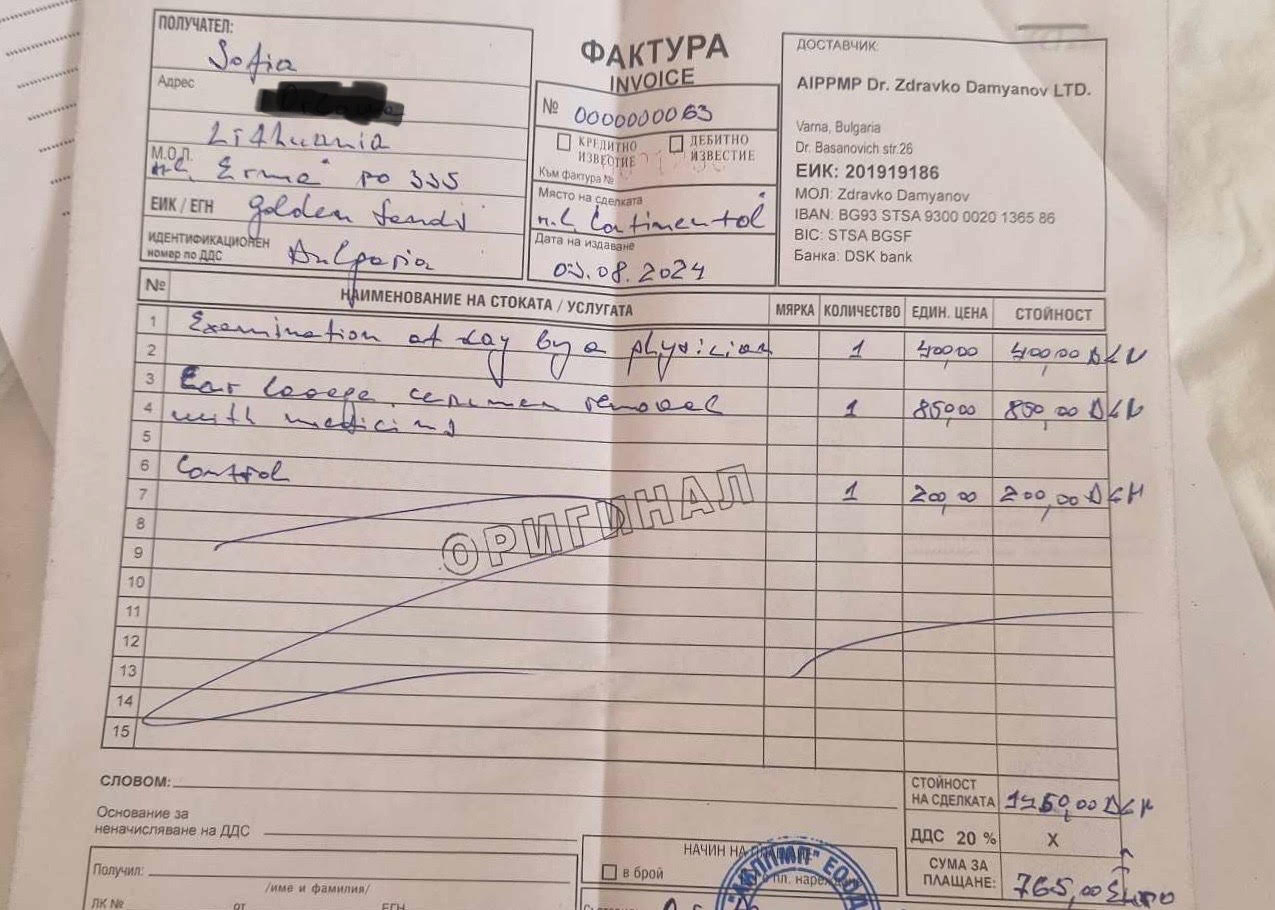 ПОЛУЧАТЕЛ:
Sofia
Адрес
Lithuania
М.О.Л.
h.l. "Erma" po 335
ЕИК / ЕГН golden sends
ИДЕНТИФИКАЦИОНЕН
номер по ДДС
Bulgaria
ФАКТУРА
INVOICE
№ 0000000063
КРЕДИТНО
ИЗВЕСТИЕ
ДЕБИТНО
ИЗВЕСТИЕ
Към фактура №
Място на сделката
Continental
Дата на издаване
03.08.2024
ДОСТАВЧИК:
AIPPMP Dr. Zdravko Damyanov LTD.
Varna, Bulgaria
Dr. Basanovich str.26
ЕИК: 201919186
МОЛ: Zdravko Damyanov
IBAN: BG93 STSA 9300 0020 1365 86
BIC: STSA BGSF
Банка: DSK bank
№ НАИМЕНОВАНИЕ НА СТОКАТА / УСЛУГАТА МЯРКА КОЛИЧЕСТВО ЕДИН. ЦЕНА СТОЙНОСТ
1 Examination at day by a physician
2 1 400,00 400,00
3 Ear cerumen removal
4 with 1 850,00 850,00
5
6 Control
7 1 200,00 200,00
8
9
10
11
12
13
14
15
ОРИГИНАЛ
СЛОВОМ:
СТОЙНОСТ
НА СДЕЛКАТА
Основание за
неначисляване на ДДС
ДДС 20 % X
НАЧИН НА
СУМА ЗА
ПЛАЩАНЕ: 765,00 Euro
Получил:
/име и фамилия/
в брой
ЛК № от ЕГН